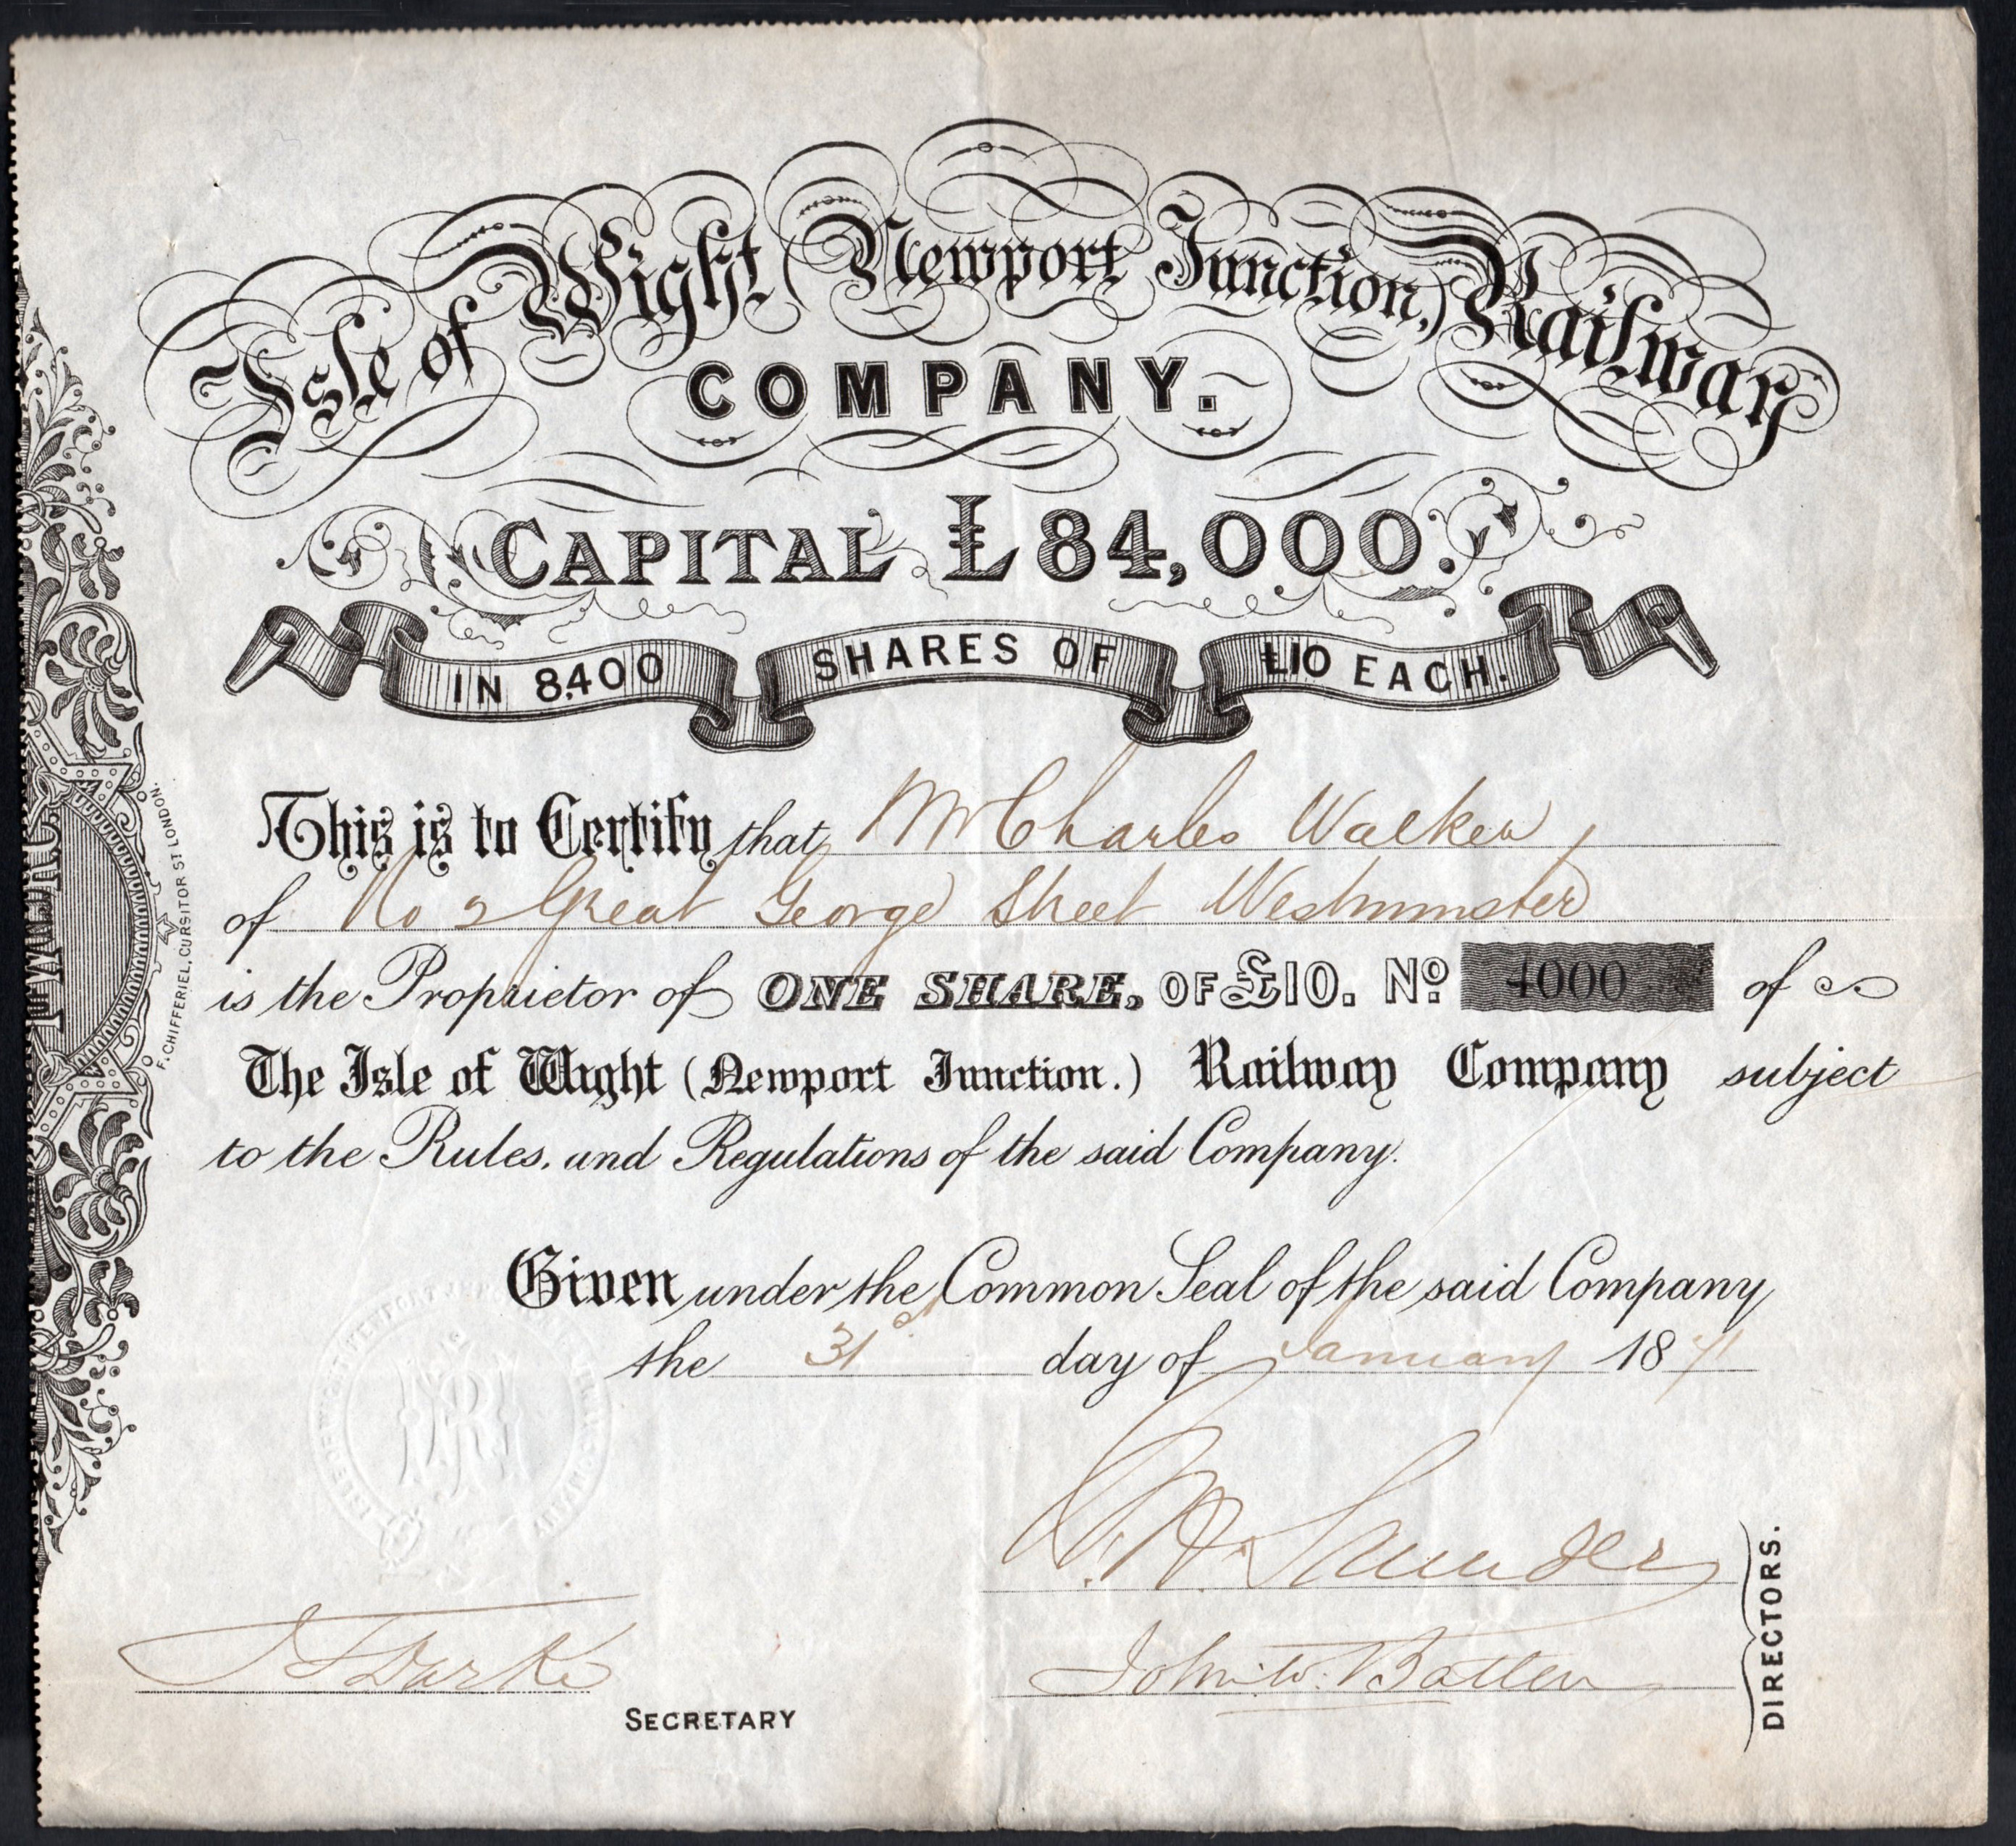 Isle of Wight (Newport Junction,) Railway
COMPANY.
CAPITAL £84,000.
IN 8,400 SHARES OF £10 EACH.
This is to Certify that Mr Charles Walker,
of No 2 Great George Street Westminster
is the Proprietor of ONE SHARE, OF £10. No. 4000 of
The Isle of Wight (Newport Junction.) Railway Company subject
to the Rules, and Regulations of the said Company.
Given under the Common Seal of the said Company
the 31st day of January 1871
Saunders
John W. Batten
DIRECTORS.
SECRETARY
F. CHIFFERIEL, CURSITOR ST LONDON.